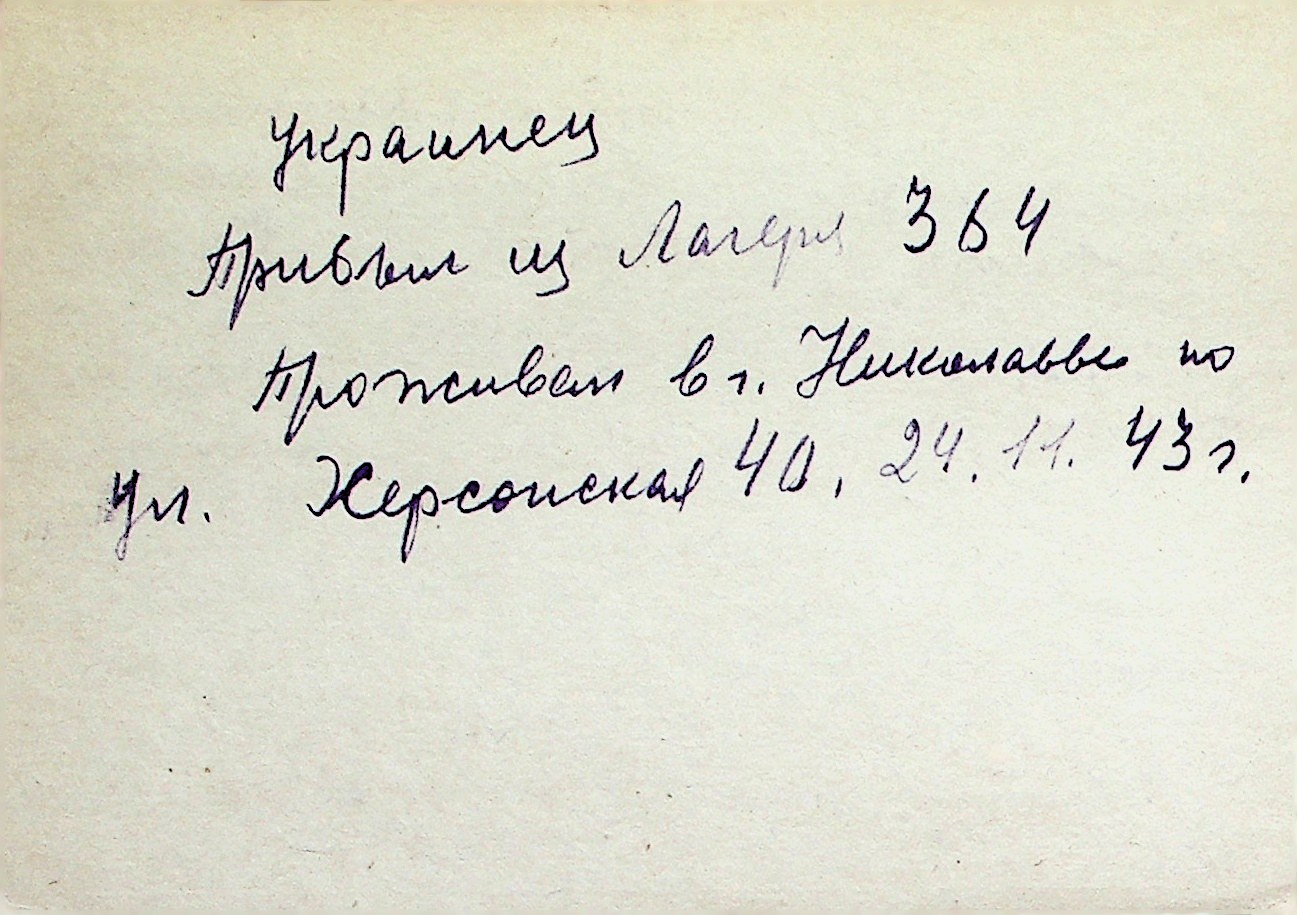 Украинец
Прибыл из Лагеря 364
Проживал в г. Николаеве по
ул. Херсонская 40, 24.11.43 г.